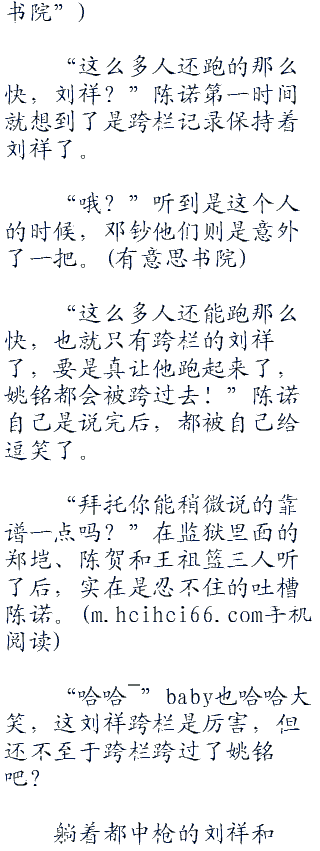 书院”)
“这么多人还跑的那么
快，刘祥？”陈诺第一时间
就想到了是跨栏记录保持着
刘祥了。
“哦？”听到是这个人
的时候，邓钞他们则是意外
了一把。(有意思书院)
“这么多人还能跑那么
快，也就只有跨栏的刘祥
了，要是真让他跑起来了，
姚铭都会被跨过去！”陈诺
自己是说完后，都被自己给
逗笑了。
“拜托你能稍微说的靠
谱一点吗？”在监狱里面的
郑垲、陈贺和王祖篮三人听
了后，实在是忍不住的吐槽
陈诺。(m.hcihci66.com手机
阅读)
“哈哈¯”baby也哈哈大
笑，这刘祥跨栏是厉害，但
还不至于跨栏跨过了姚铭
吧？
躺着都中枪的刘祥和